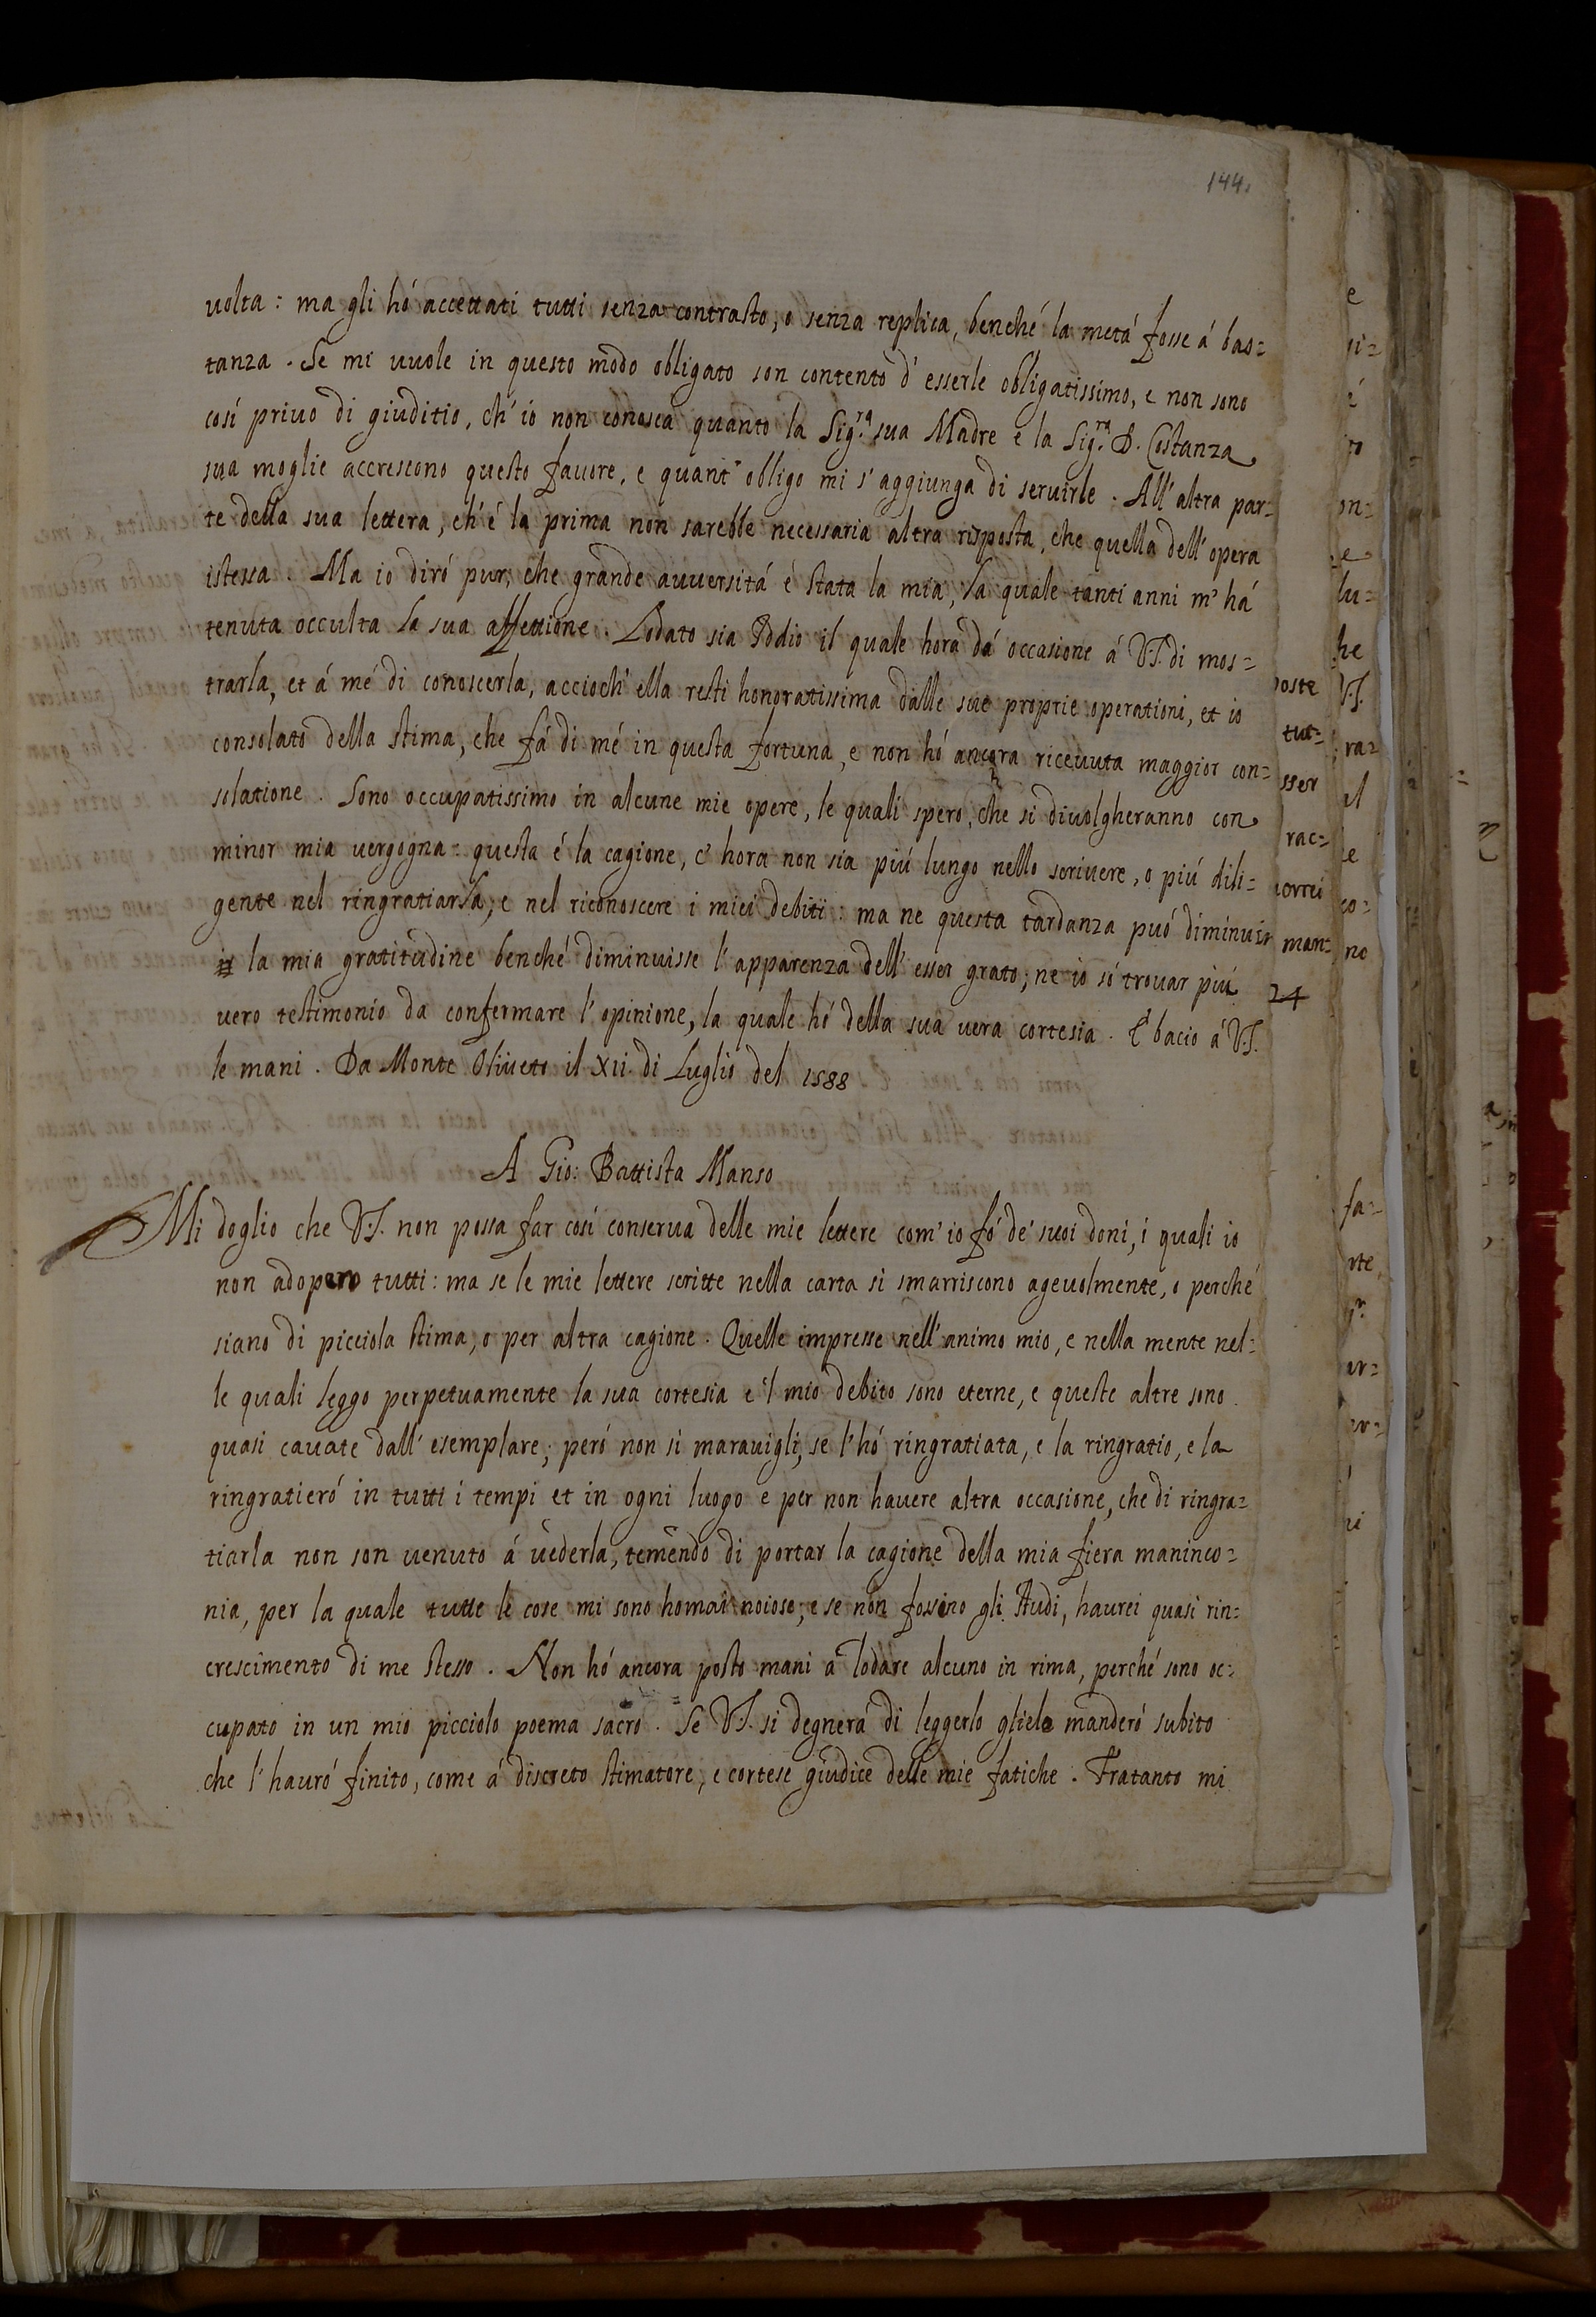 144.
uolta: ma gli hó accettati tutti senza contrasto, o senza replica, benché la metá fosse á bas=
tanza. Se mi uuole in questo modo obligato son contento d'esserle obligatissimo, e non sono
cosí priuo di giuditio, ch'io non conosca quanto la Sig.ra sua Madre e la Sig.ra D. Costanza
sua moglie accrescono questo fauore, e quant'obligo mi s'aggiunga di seruirle. All'altra par=
te della sua lettera, ch'é la prima non sarebbe necessaria altra risposta, che quella dell'opera
istessa. Ma io diró pur, che grande auuersitá é stata la mia, la quale tanti anni m'há
tenuta occulta la sua affettione. Lodato sia Iddio il quale hora dá occasione á V.S. di mos=
trarla, et á mé di conoscerla, accioch'ella resti honoratissima dalle sue proprie operationi, et io
consolato della stima, che fá di mé in questa fortuna, e non hó ancora riceuuta maggior con=
solatione. Sono occupatissimo in alcune mie opere, le quali spero, che si diuolgheranno con
minor mia uergogna: questa é la cagione, c'hora non sia piú lungo nello scriuere, o piú dili=
gente nel ringratiarla, e nel riconoscere i miei debiti: ma ne questa tardanza puó diminuir
la mia gratitudine benché diminuisse l'apparenza dell'esser grato; ne io só trouar piú
uero testimonio da confermare l'opinione, la quale hó della sua uera cortesia. E bacio á V.S.
le mani. Da Monte Oliueto il xii. di Luglio del 1588
A Gio: Battista Manso
Mi doglio che V.S. non possa far cosí conserua delle mie lettere com'io fó de' suoi doni, i quali io
non adopero tutti: ma se le mie lettere scritte nella carta si smarriscono ageuolmente, o perché
siano di picciola stima, o per altra cagione. Quelle impresse nell'animo mio, e nella mente nel=
le quali leggo perpetuamente la sua cortesia e'l mio debito sono eterne, e queste altre sono
quasi cauate dall'esemplare; peró non si marauigli, se l'hó ringratiata, e la ringratio, e la
ringratieró in tutti i tempi et in ogni luogo e per non hauere altra occasione, che di ringra=
tiarla non son uenuto á uederla, temendo di portar la cagione della mia fiera maninco=
nia, per la quale tutte le cose mi sono homai noiose; e se non fossino gli studi, haurei quasi rin=
crescimento di me stesso. Non hó ancora posto mani á lodare alcuno in rima, perché sono oc=
cupato in un mio picciolo poema sacro. Se V.S. si degnerá di leggerlo glielo manderó subito
che l'hauró finito, come á discreto stimatore, e cortese giudice delle mie fatiche. Fratanto mi